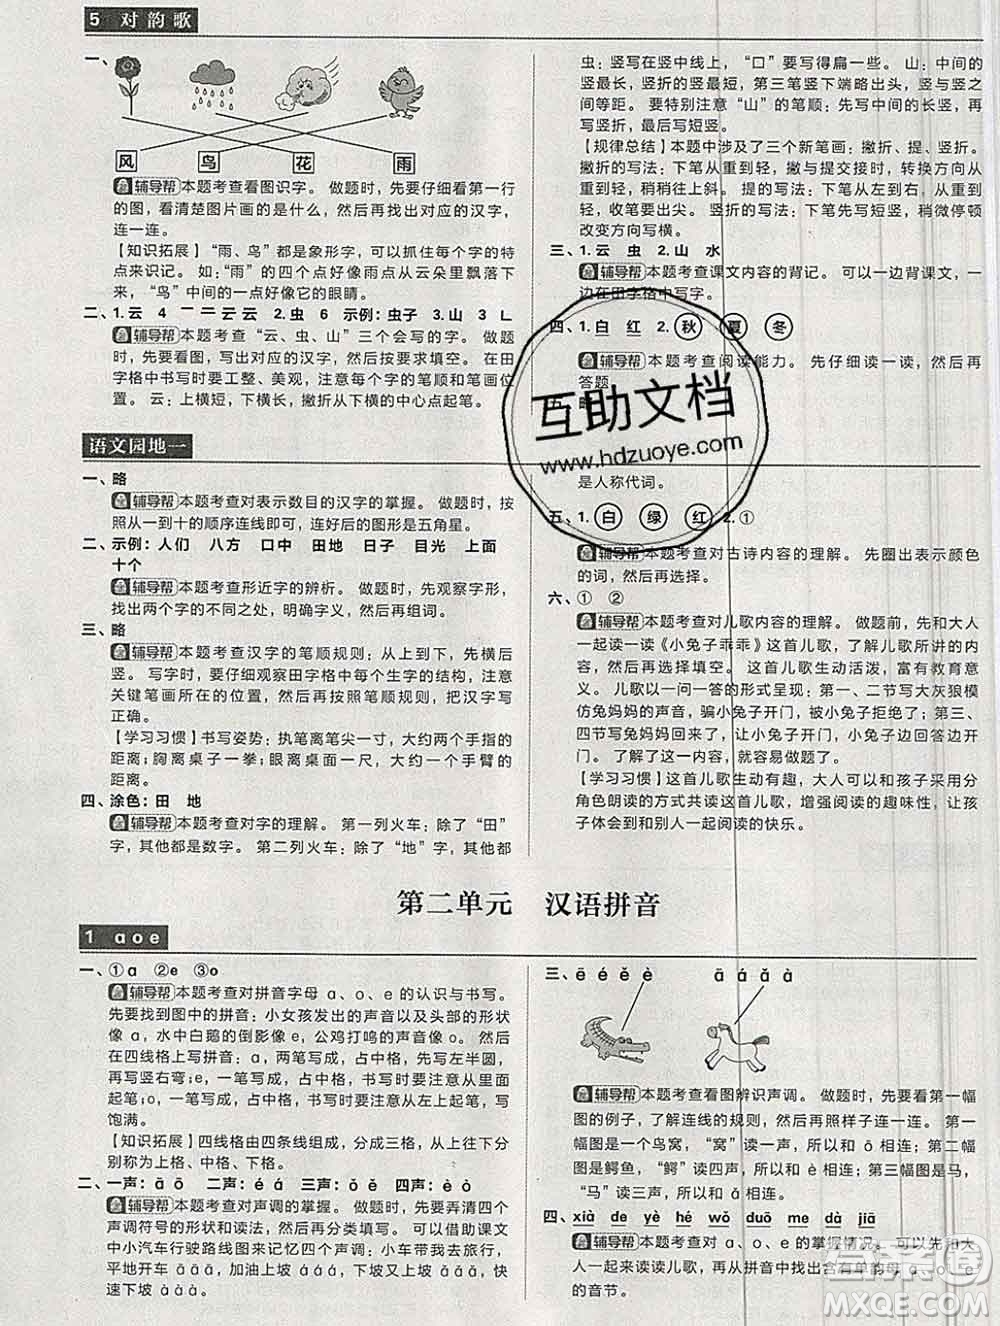 5 对韵歌
一、
风 鸟 花 雨
辅导帮 本题考查看图识字。做题时，先要仔细看第一行
的图，看清楚图片画的是什么，然后再找出对应的汉字，
连一连。
【知识拓展】“雨、鸟”都是象形字，可以抓住每个字的特
点来识记。如：“雨”的四个点好像雨点从云朵里飘落下
来，“鸟”中间的一点好像它的眼睛。
二、1.云 4 一 二 云 云 2.虫 6 示例：虫子 3.山 3 ㄴ
辅导帮 本题考查“云、虫、山”三个会写的字。做题
时，要先看图，写出对应的汉字，然后再完成练习。在田
字格中书写时要工整、美观，注意每个字的笔顺和笔画位
置。云：上横短，下横长，撇折从下横的中心点起笔。
虫：竖写在竖中线上，“口”要写得扁一些。山：中间的竖
最长，竖折的竖最短，第三笔竖下端略出头，竖与竖之
间等距。要特别注意“山”的笔顺：先写中间的长竖，再
写竖折，最后写短竖。
【规律总结】本题中涉及了三个新笔画：撇折、提、竖折。
撇折的写法：下笔从重到轻，撇与提交接时，转换方向从
重到轻，稍稍往上斜。提的写法：下笔从左到右，从重到
轻，收笔要出尖。竖折的写法：下笔先写短竖，稍微停顿
改变方向写横。
三、1.云 虫 2.山 水
辅导帮 本题考查课文内容的背记。可以一边背课文，一
边在田字格中写字。
四、1.白 红 2.秋 夏 冬
辅导帮 本题考查阅读能力。先仔细读一读，然后再
答题。
语文园地一
一、略
辅导帮 本题考查对表示数目的汉字的掌握。做题时，按
照从一到十的顺序连线即可，连好后的图形是五角星。
二、示例：人们 八方 口中 田地 日子 目光 上面
十个
辅导帮 本题考查形近字的辨析。做题时，先观察字形，
找出两个字的不同之处，明确字义，然后再组词。
三、略
辅导帮 本题考查汉字的笔顺规则：从上到下，先横后
竖。写字时，要仔细观察田字格中每个生字的结构，注意
关键笔画所在的位置，然后再按照笔顺规则，把汉字写
正确。
【学习习惯】书写姿势：执笔离笔尖一寸，大约两个手指的
距离；胸离桌子一拳；眼离桌面一尺，大约一个手臂的
距离。
四、涂色：田 地
辅导帮 本题考查对字的理解。第一列火车：除了“田”
字，其他都是数字。第二列火车：除了“地”字，其他都
是人称代词。
五、1.白 绿 红 2.①
辅导帮 本题考查对古诗内容的理解。先圈出表示颜色
的词，然后再选择。
六、① ②
辅导帮 本题考查对儿歌内容的理解。做题前，先和大人
一起读一读《小兔子乖乖》这首儿歌，了解儿歌所讲的内
容，然后再选择填空。这首儿歌生动活泼，富有教育意
义。儿歌以一问一答的形式呈现：第一、二节写大灰狼模
仿兔妈妈的声音，骗小兔子开门，被小兔子拒绝了；第三、
四节写兔妈妈回来了，让小兔子开门，小兔子边回答边开
门。了解了这一内容，就容易做题了。
【学习习惯】这首儿歌生动有趣，大人可以和孩子采用分
角色朗读的方式共读这首儿歌，增强阅读的趣味性，让孩
子体会到和别人一起阅读的快乐。
第二单元 汉语拼音
1 ɑ o e
一、①ɑ ②e ③o
辅导帮 本题考查对拼音字母 ɑ、o、e 的认识与书写。
先要找到图中的拼音：小女孩发出的声音以及头部的形状
像 ɑ，水中白鹅的倒影像 e，公鸡打鸣的声音像 o。然后
在四线格上写拼音：ɑ，两笔写成，占中格，先写左半圆，
再写竖右弯；e，一笔写成，占中格，书写时要注意从中
间起笔；o，一笔写成，占中格，书写时要注意从左下方
饱满。
【知识拓展】四线格由四条线组成，分成三格，从上往下分
别为上格、中格、下格。
二、一声：ā ō 二声：é á 三声：ǒ ě 四声：è ò
辅导帮 本题考查对声调的掌握。做题时，先要弄清四个
声调符号的形状和读法，然后再分类填写。可以借助课文
中小汽车行驶路线图来记忆四个声调：小车带我去旅行，
平地开车 āāā，加油上坡 ááá，下坡又上坡 ǎǎǎ，快
速下坡 ààà。
三、ē é ě è ā á ǎ à
辅导帮 本题考查看图辨识声调。做题时，先要看第一幅
图的例子，了解连线的规则，然后再照样子连一连。第一
幅图是一个鸟窝，“窝”读一声，所以和 ō 相连。第二幅
图是鳄鱼，“鳄”读四声，所以和 è 相连。第三幅图是马，
“马”读三声，所以和 ǎ 相连。
四、xià de yè hé wǒ duō me dà jiā
辅导帮 本题考查对 ɑ、o、e 的掌握情况。可以先和大
人一起来读读儿歌，再从拼音中找出含有单韵母 ɑ、o、e
的音节。
互助文档
www.hdzuoye.com
答案圈
MXQE.COM